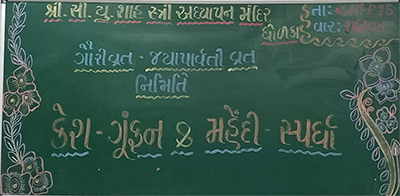 શ્રી. સી. યુ. શાહ સ્ત્રી અધ્યાપન મંદિર, ધોળકા
તા:
વાર: શનિવાર
ગૌરીવ્રત - જયાપાર્વતી વ્રત
નિમિતે
કેશ - ગૂંફન & મહેંદી - સ્પર્ધા